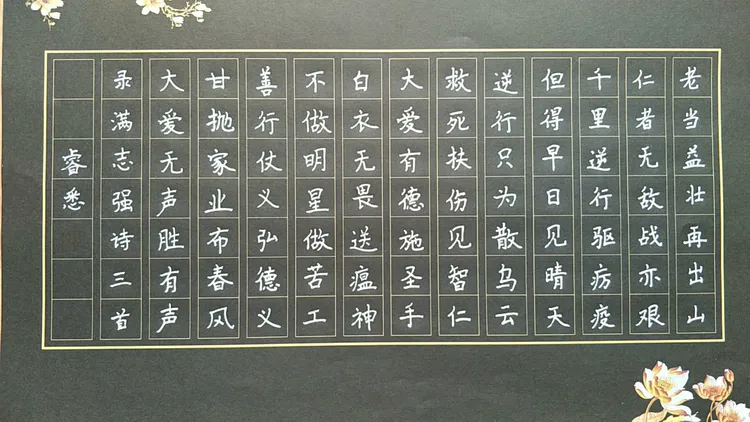 老当益壮再出山
仁者无敌战亦艰
千里逆行驱疠疫
但得早日见晴天
逆行只为散乌云
救死扶伤见智仁
大爱有德施圣手
白衣无畏送瘟神
不做明星做苦工
善行仗义弘德义
甘抛家业布春风
大爱无声胜有声
录满志强诗三首
睿悉